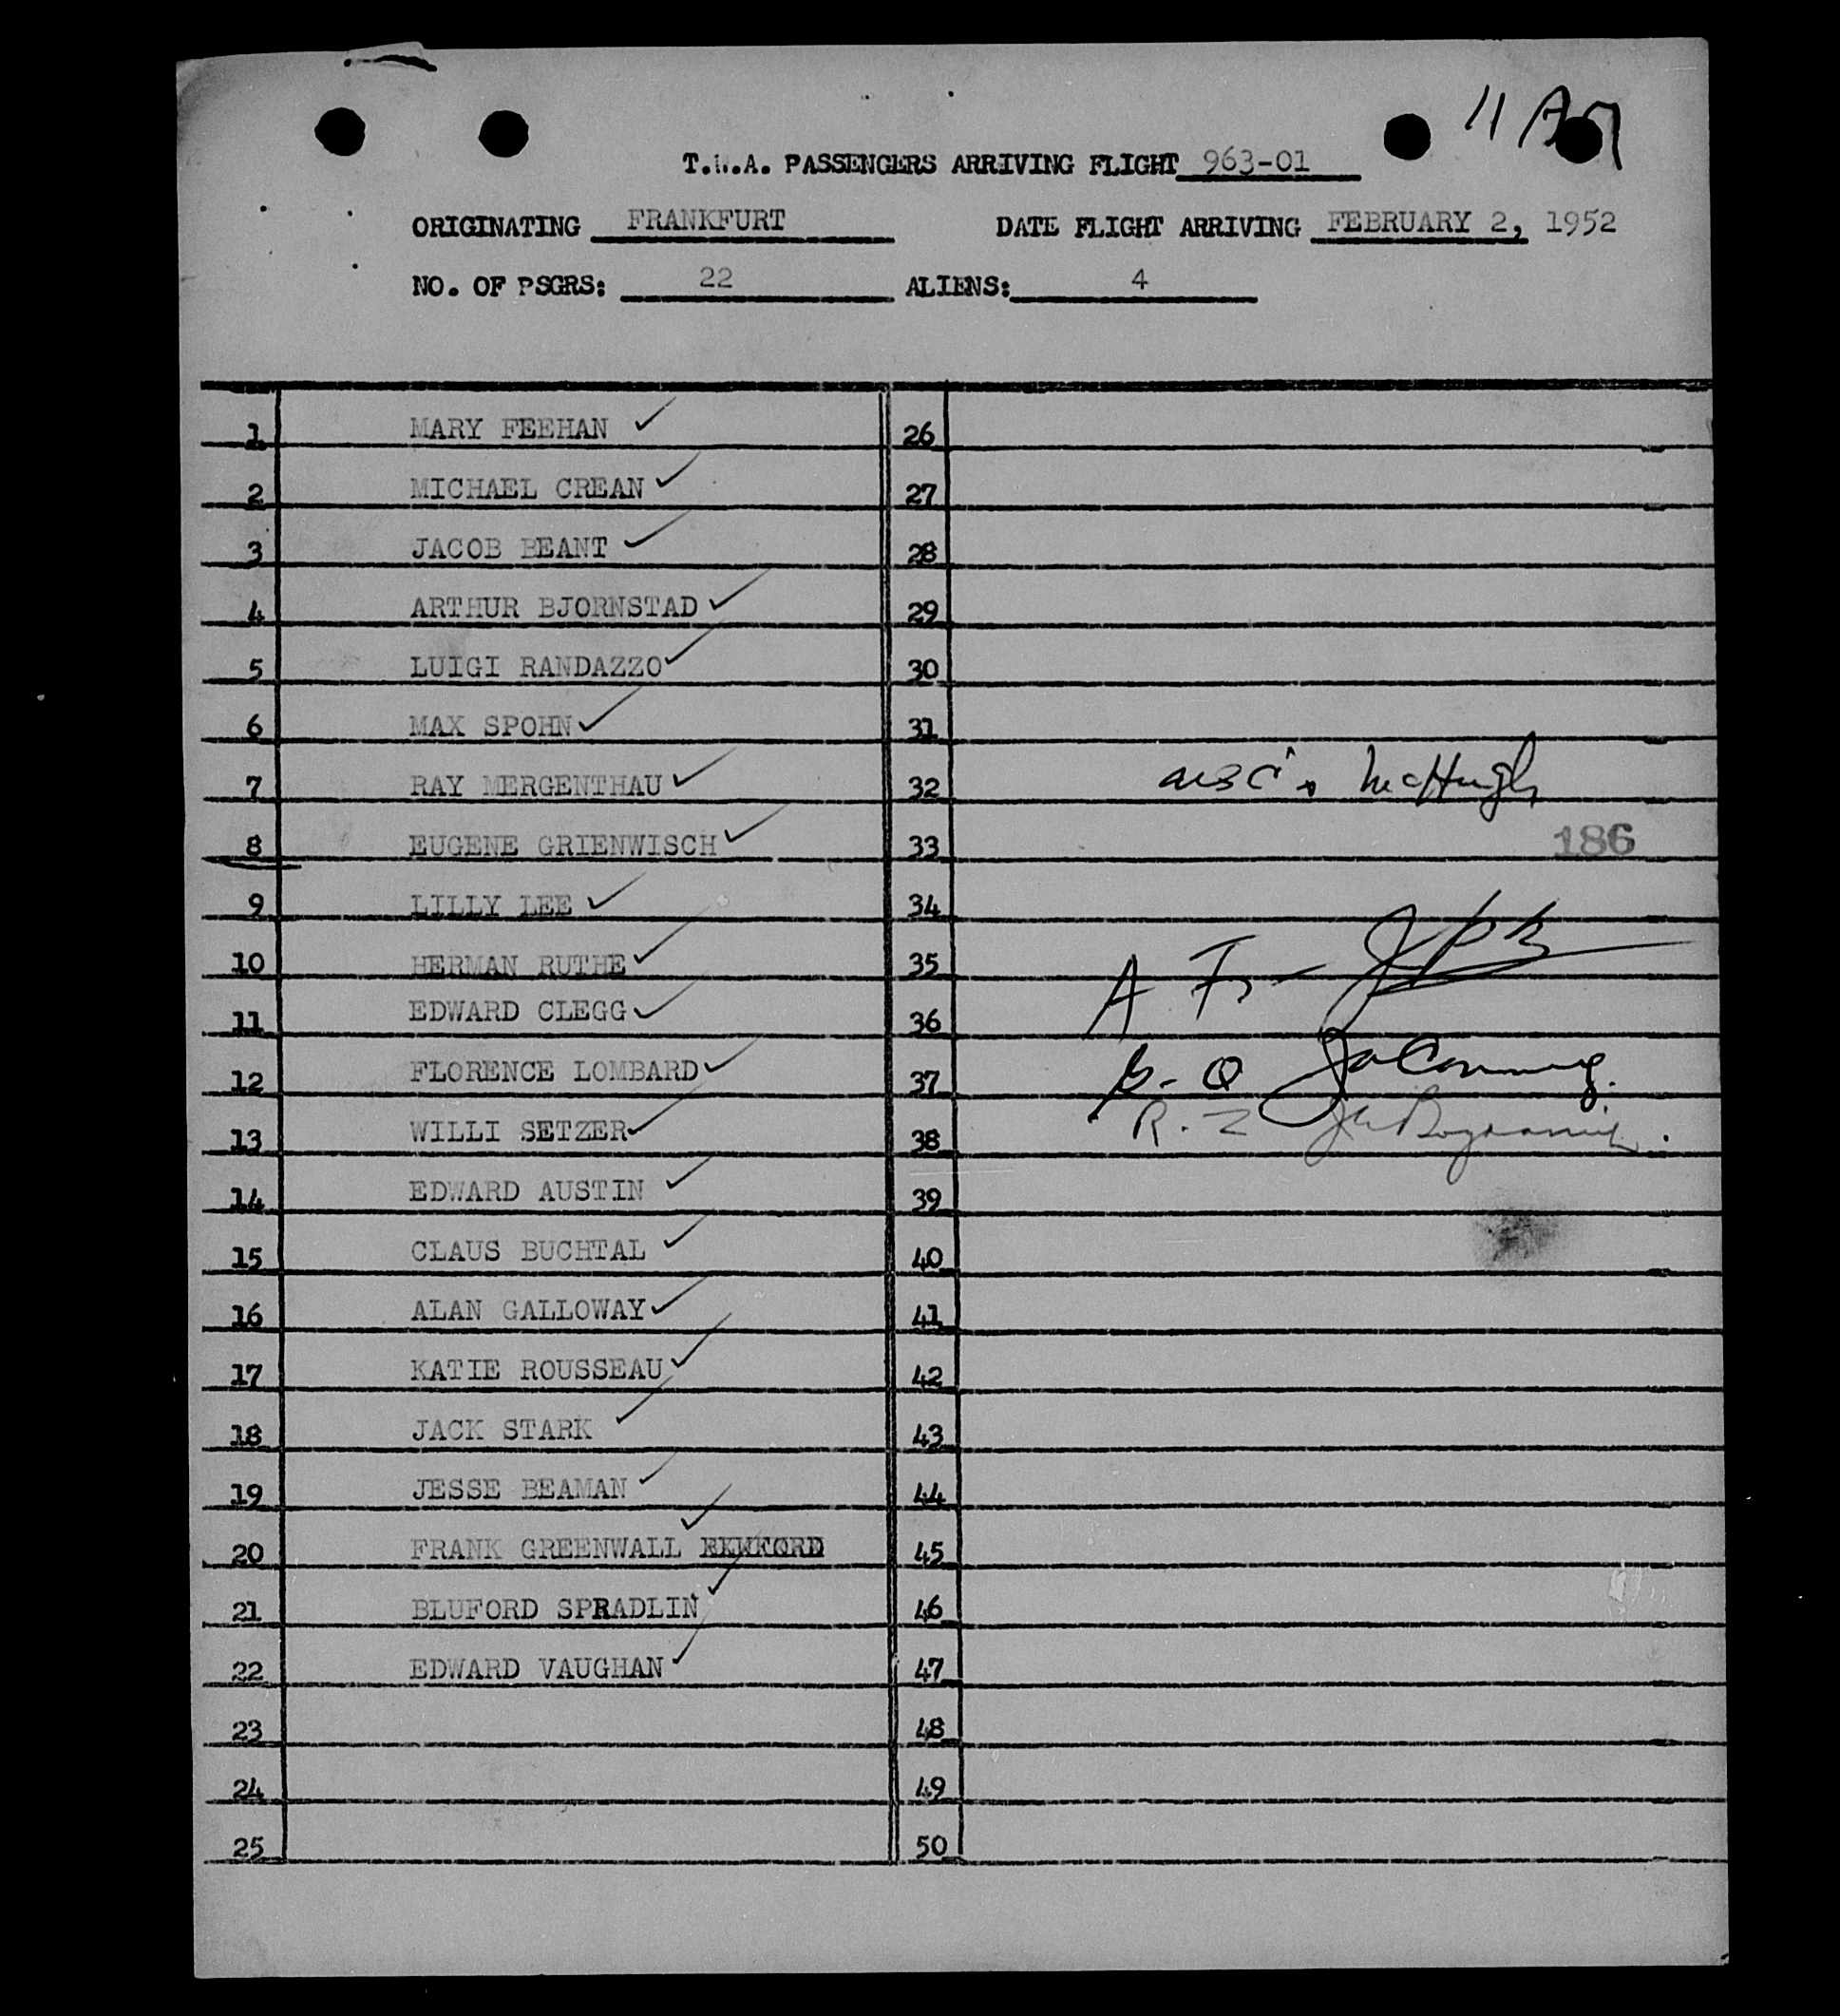 11 AM
T.W.A. PASSENGERS ARRIVING FLIGHT 963-01
ORIGINATING FRANKFURT DATE FLIGHT ARRIVING FEBRUARY 2, 1952
NO. OF PSGRS: 22 ALIENS: 4
1 MARY FEEHAN ✓ 26
2 MICHAEL CREAN ✓ 27
3 JACOB BEANT ✓ 28
4 ARTHUR BJORNSTAD ✓ 29
5 LUIGI RANDAZZO ✓ 30
6 MAX SPOHN ✓ 31
7 RAY MERGENTHAU ✓ 32 McHugh
8 EUGENE GRIENWISCH ✓ 33 186
9 LILLY LEE ✓ 34
10 HERMAN RUTHE ✓ 35
11 EDWARD CLEGG ✓ 36 A
12 FLORENCE LOMBARD ✓ 37 Q
13 WILLI SETZER ✓ 38 R. Z
14 EDWARD AUSTIN ✓ 39
15 CLAUS BUCHTAL ✓ 40
16 ALAN GALLOWAY ✓ 41
17 KATIE ROUSSEAU ✓ 42
18 JACK STARK ✓ 43
19 JESSE BEAMAN ✓ 44
20 FRANK GREENWALL ✓ 45
21 BLUFORD SPRADLIN ✓ 46
22 EDWARD VAUGHAN ✓ 47
23 48
24 49
25 50